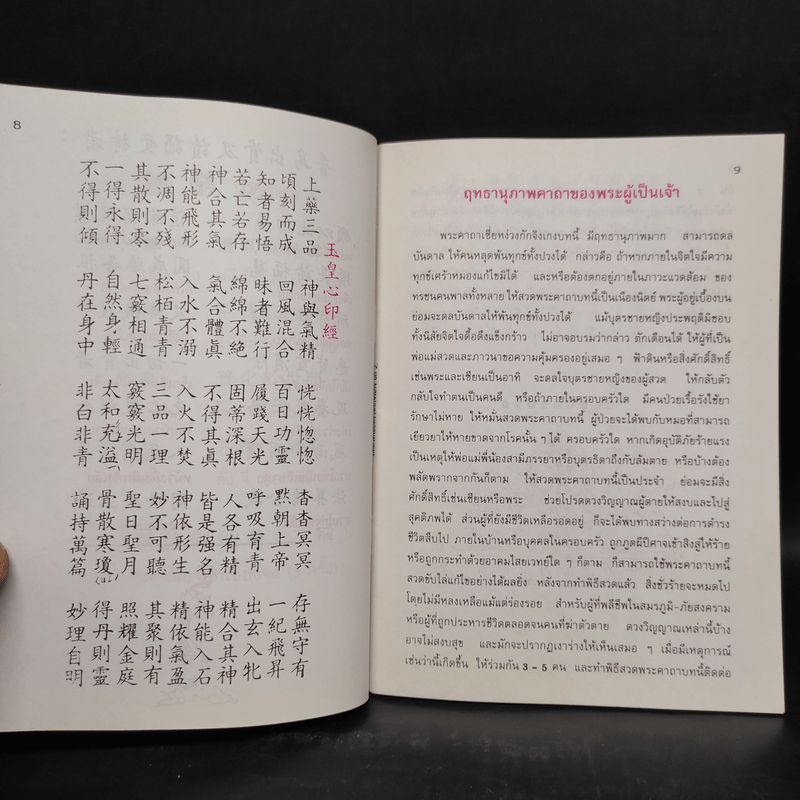 8
玉皇心印經
上藥三品 神與氣精 恍恍惚惚 杳杳冥冥 存無守有
頃刻而成 回風混合 百日功靈 默朝上帝 一紀飛昇
知者易悟 昧者難行 履踐天光 呼吸育青 出玄入牝
若亡若存 綿綿不絕 固蒂深根 人各有精 精合其神
神合其氣 氣合體眞 不得其眞 皆是强名 神能入石
神能飛形 入水不溺 入火不焚 神依形生 精依氣盈
不凋不殘 松栢青青 三品一理 妙不可聽 其聚則有
其散則零 七竅相通 竅竅光明 聖日聖月 照耀金庭
一得永得 自然身輕 太和充溢 骨散寒瓊 得丹則靈
不得則傾 丹在身中 非白非青 誦持萬篇 妙理自明
9
ฤทธานุภาพคาถาของพระผู้เป็นเจ้า
พระคาถาเซียหง่วงกักจิงเกงบทนี้ มีฤทธานุภาพมาก สามารถดล
บันดาล ให้คนหลุดพ้นทุกข์ทั้งปวงได้ กล่าวคือ ถ้าหากภายในจิตใจมีความ
ทุกข์เศร้าหมองแก้ไขมิได้ และหรือต้องตกอยู่ภายในภาวะแวดล้อม ของ
ทรชนคนพาลทั้งหลาย ให้สวดพระคาถาบทนี้เป็นเนืองนิตย์ พระผู้อยู่เบื้องบน
ย่อมจะดลบันดาลให้พ้นทุกข์ทั้งปวงได้ แม้บุตรชายหญิงประพฤติมิชอบ
ทั้งนิสัยจิตใจดื้อดึงแข็งกร้าว ไม่อาจอบรมว่ากล่าว ตักเตือนได้ ให้ผู้ที่เป็น
พ่อแม่สวดและภาวนาขอความคุ้มครองอยู่เสมอ ๆ ฟ้าดินหรือสิ่งศักดิ์สิทธิ์
เช่นพระและเซียนเป็นอาทิ จะดลใจบุตรชายหญิงของผู้สวด ให้กลับตัว
กลับใจทำตนเป็นคนดี หรือถ้าภายในครอบครัว มีคนป่วยเรื้อรังใช้ยา
รักษาไม่หาย ให้หมั่นสวดพระคาถาบทนี้ ผู้ป่วยจะได้พบกับหมอที่สามารถ
เยียวยาให้หายขาดจากโรคนั้น ๆ ได้ ครอบครัวใด หากเกิดอุบัติภัยร้ายแรง
เป็นเหตุให้พ่อแม่พี่น้องสามีภรรยาหรือบุตรธิดาถึงกับล้มตาย หรือบ้างต้อง
พลัดพรากจากกันก็ตาม ให้สวดพระคาถาบทนี้เป็นประจำ ย่อมจะมีสิ่ง
ศักดิ์สิทธิ์เช่นเซียนหรือพระ ช่วยโปรดดวงวิญญาณผู้ตายให้สงบและไปสู่
สุคติภพได้ ส่วนผู้ที่ยังมีชีวิตเหลือรอดอยู่ ก็จะได้พบทางสว่างต่อการดำรง
ชีวิตสืบไป ภายในบ้านหรือบุคคลในครอบครัว ถูกภูตผีปีศาจเข้าสิงสู่ให้ร้าย
หรือถูกกระทำด้วยอาคมไสยเวทย์ใด ๆ ก็ตาม ก็สามารถใช้พระคาถาบทนี้
สวดขับไล่แก้ไขอย่างได้ผลยิ่ง หลังจากทำพิธีสวดแล้ว สิ่งชั่วร้ายจะหมดไป
โดยไม่มีหลงเหลือแม้แต่ร่องรอย สำหรับผู้ที่พลีชีพในสมรภูมิ-ภัยสงคราม
หรือผู้ที่ถูกประหารชีวิตตลอดจนคนที่ฆ่าตัวตาย ดวงวิญญาณเหล่านี้บ้าง
อาจไม่สงบสุข และมักจะปรากฏเงาร่างให้เห็นเสมอ ๆ เมื่อมีเหตุการณ์
เช่นว่านี้เกิดขึ้น ให้ร่วมกัน 3 - 5 คน และทำพิธีสวดพระคาถาบทนี้ติดต่อ